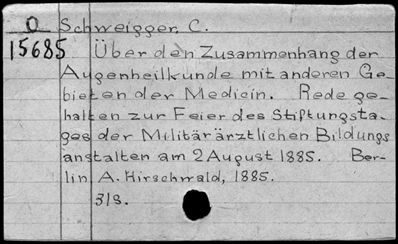 O Schweigger, C.
15685 Über den Zusammenhang der
Augenheilkunde mit anderen Ge-
bieten der Medicin. Rede ge-
halten zur Feier des Stiftungsta-
ges der Militärärztlichen Bildungs
anstalten am 2 August 1885. Ber-
lin A. Hirschwald, 1885.
31s.